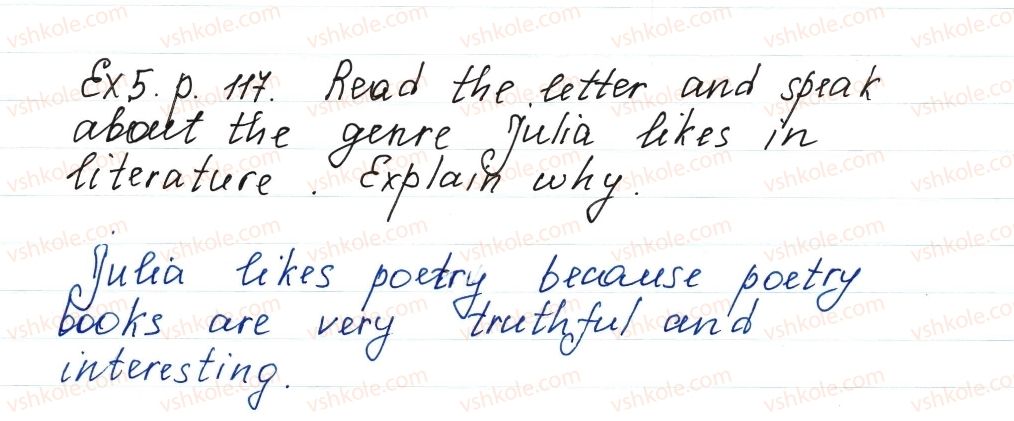 Ex 5. p. 117. Read the letter and speak
about the genre Julia likes in
literature. Explain why.
Julia likes poetry because poetry
books are very truthful and
interesting.